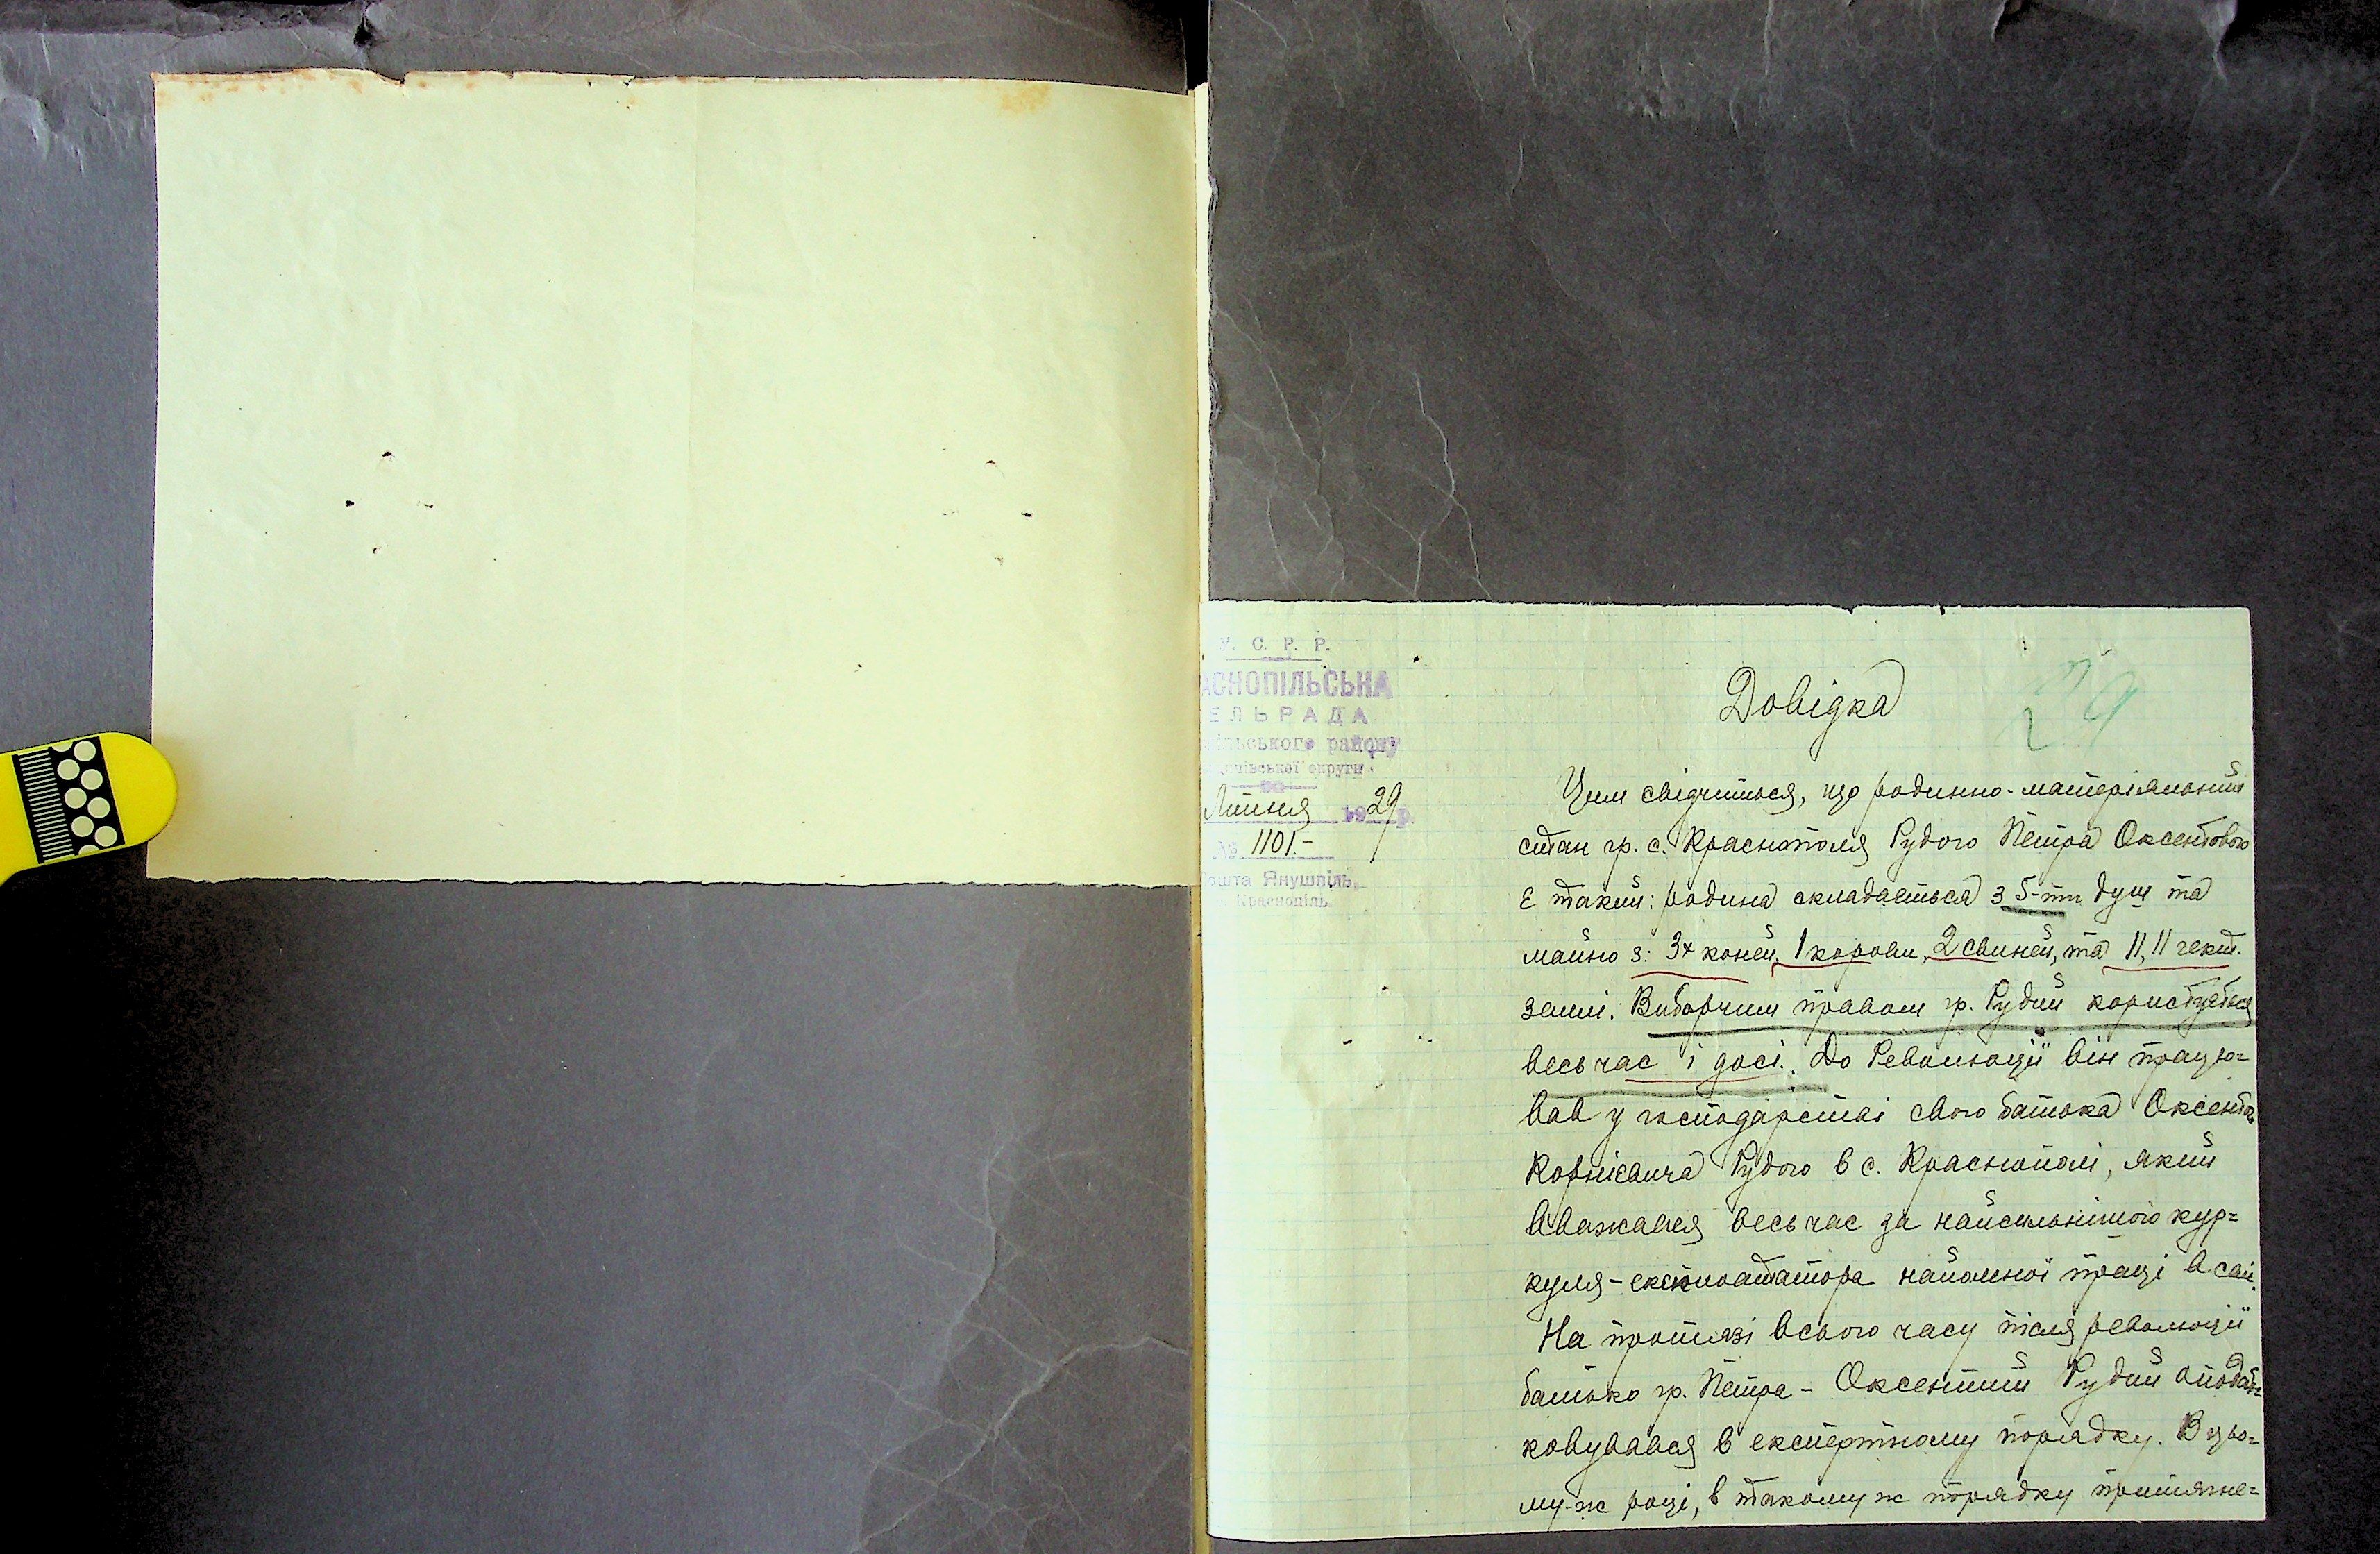 С. Р. Р.
АСНОПІЛЬСЬКА
ЕЛЬРАДА
ільського району
округи
Липня 1929 р.
№ 1101.-
ошта Янушпіль,
Краснопіль.
29
Довідка
Цим свідчиться, що родинно-матеріяльний
стан гр. с. Краснополя Рудого Петра Оксентового
є такий: родина складається з 5-ти душ та
майно з: 3х коней, 1 корови, 2 свиней, та 11,11 гект.
землі. Виборчим правом гр. Рудий користується
весь час і досі. До Революції він працю=
вав у господарстві свого батька Оксента
Корнієвича Рудого в с. Краснополі, який
вважався весь час за найсильнішого кур=
куля-експлоататора найомної праці в селі.
На протязі всього часу після революції
батько гр. Петра - Оксентий Рудий оподат=
ковувався в експертному порядку. В цьо=
му-ж році, в такому ж порядку притягне=